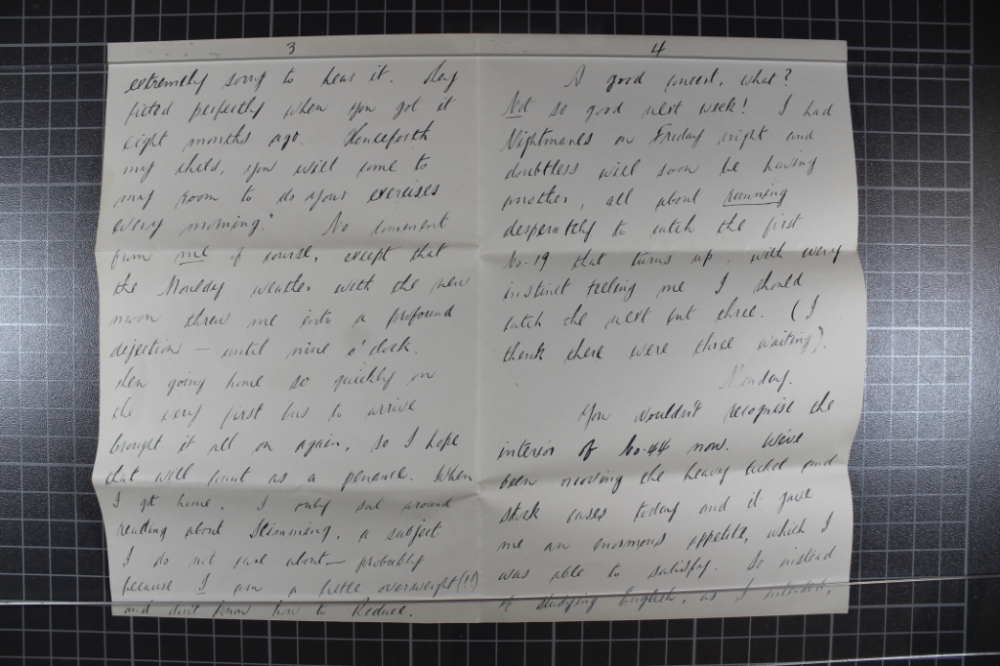 3
extremely sorry to hear it. They
fitted perfectly when you got it
eight months ago. Henceforth
my child, you will come to
my room to do your exercises
every morning." No comment
from me of course, except that
the Monday weather with the new
moon threw me into a profound
dejection — until nine o'clock.
Then going home so quickly on
the very first bus to arrive
brought it all on again, so I hope
that will count as a penance. When
I got home, I only sat around
reading about Slimming, a subject
I do not care about — probably
because I am a little overweight (!!)
and don't know how to Reduce.
4
A good concert, what?
Not so good next week! I had
Nightmares on Friday night and
doubtless will soon be having
another, all about running
desperately to catch the first
No. 19 that turns up, with every
instinct telling me I should
catch the next but three. (I
think there were three waiting).
Monday.
You wouldn't recognise the
interior of No. 44 now. We've
been moving the heavy ticket and
stock cases today and it gave
me an enormous appetite, which I
was able to satisfy. So instead
of studying English, as I intended,